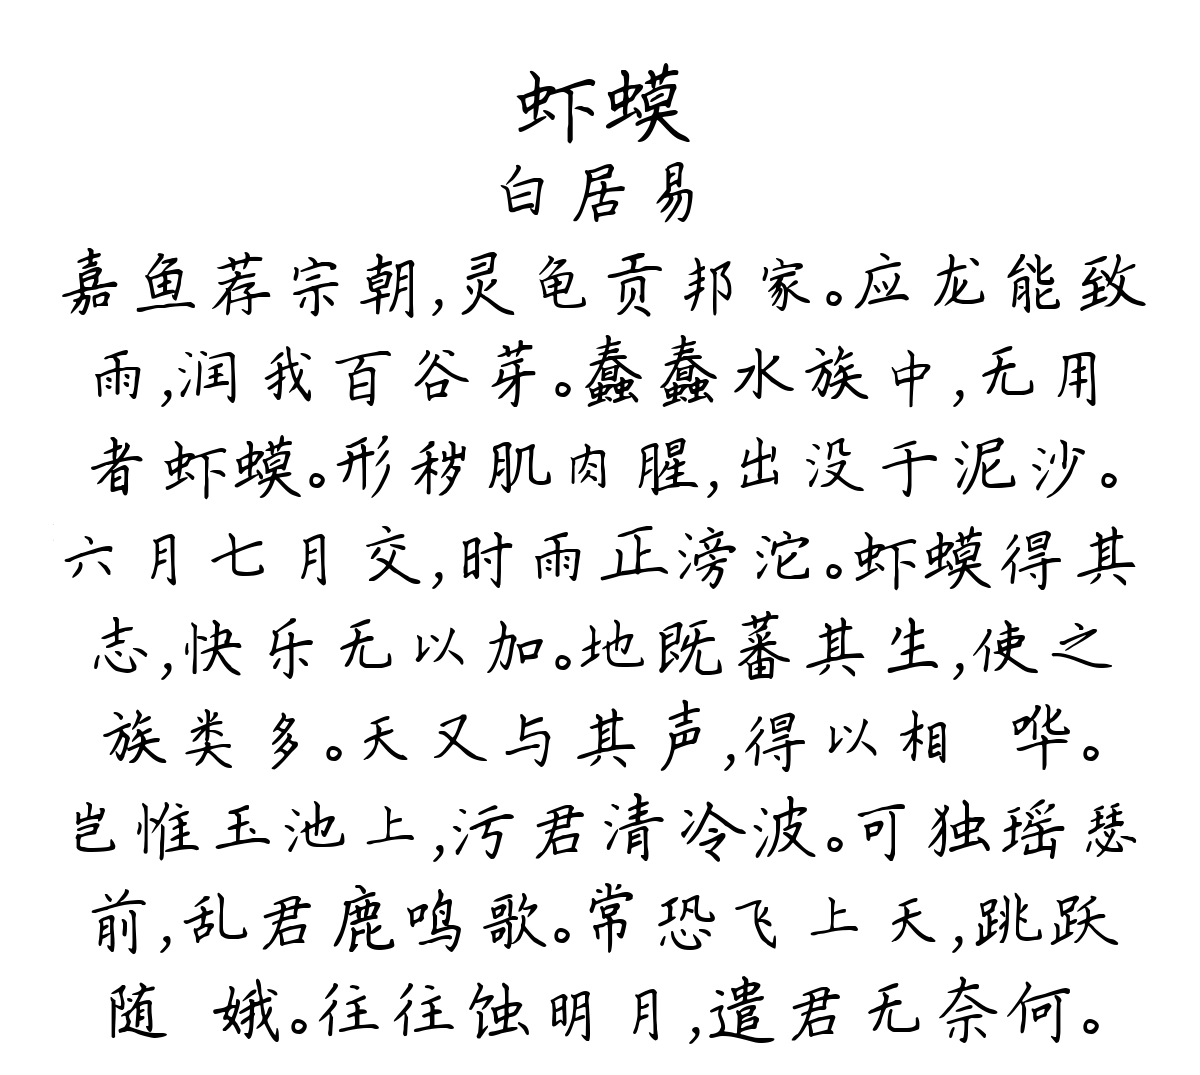 虾蟆
白居易
嘉鱼荐宗朝,灵龟贡邦家。应龙能致
雨,润我百谷芽。蠢蠢水族中,无用
者虾蟆。形秽肌肉腥,出没于泥沙。
六月七月交,时雨正滂沱。虾蟆得其
志,快乐无以加。地既蕃其生,使之
族类多。天又与其声,得以相 哗。
岂惟玉池上,污君清冷波。可独瑶瑟
前,乱君鹿鸣歌。常恐飞上天,跳跃
随 娥。往往蚀明月,遣君无奈何。